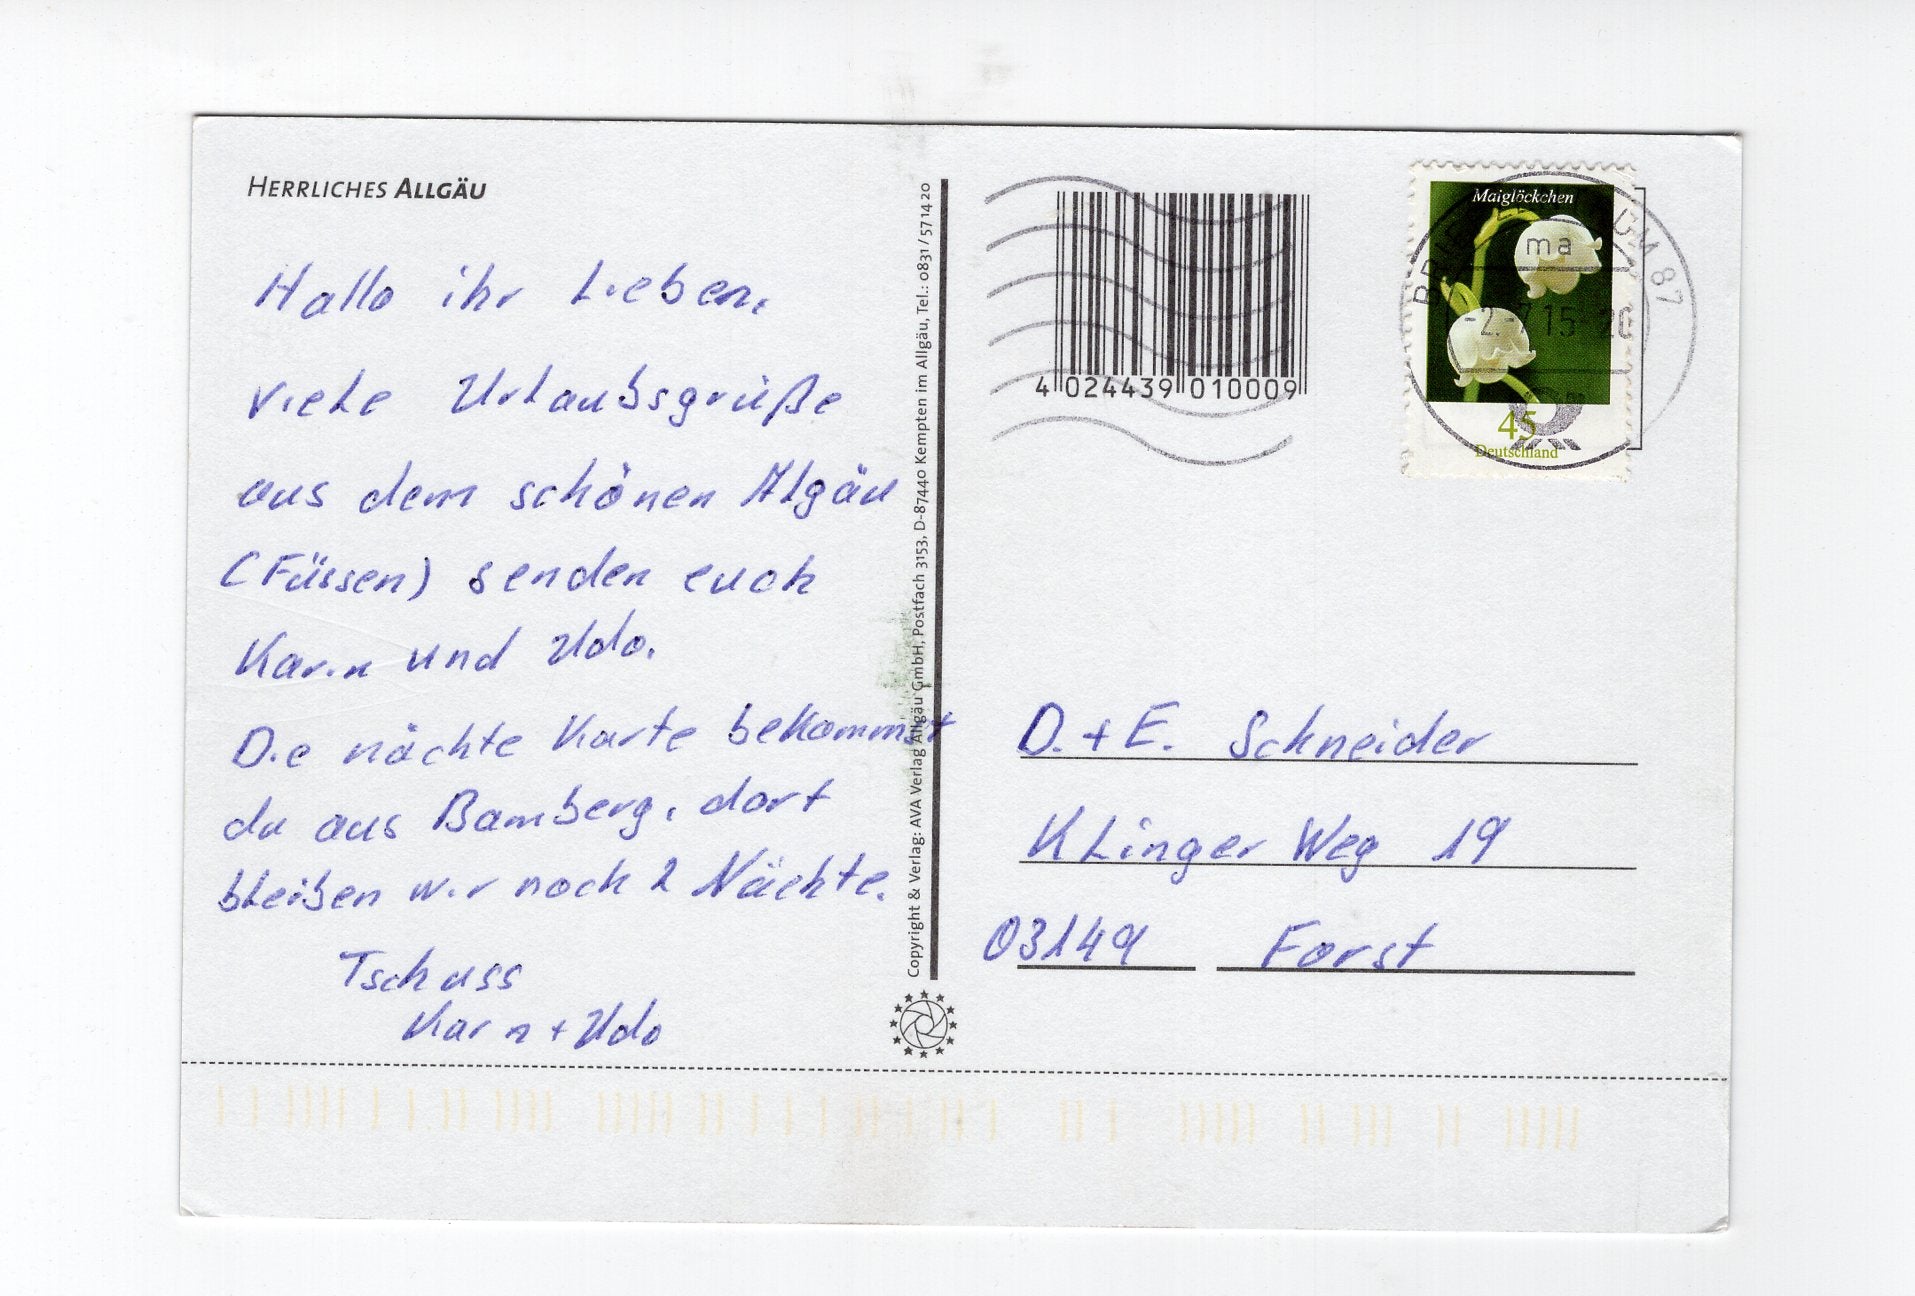 HERRLICHES ALLGÄU
Hallo ihr Lieben,
viele Urlaubsgrüße
aus dem schönen Algäu
(Füssen) senden euch
Karin und Udo.
Die nächte Karte bekommst
du aus Bamberg, dort
bleiben wir noch 2 Nächte.
Tschuss
Karin + Udo
Copyright & Verlag: AVA Verlag Allgäu GmbH, Postfach 3153, D-87440 Kempten im Allgäu, Tel.: 0831/57 14 20
4 024439 010009
Maiglöckchen
ma
-2.-7.15-20
87
45
Deutschland
D. + E. Schneider
Klinger Weg 19
03149 Forst